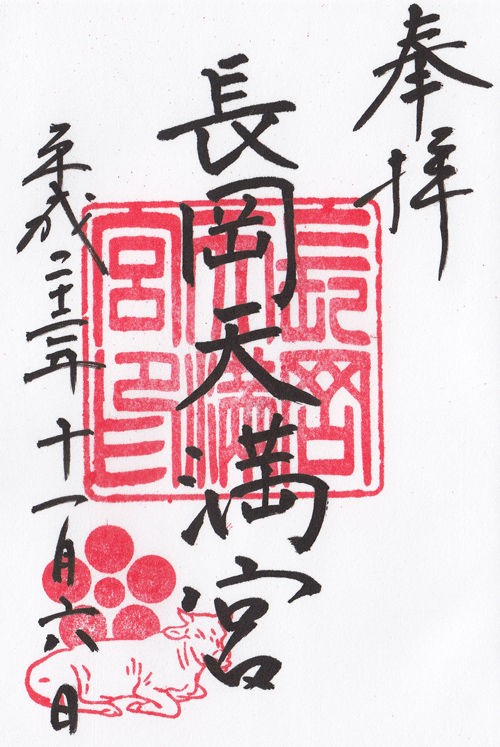 奉拝
長岡天満宮
平成二十三年十一月六日
長岡
天満
宮印